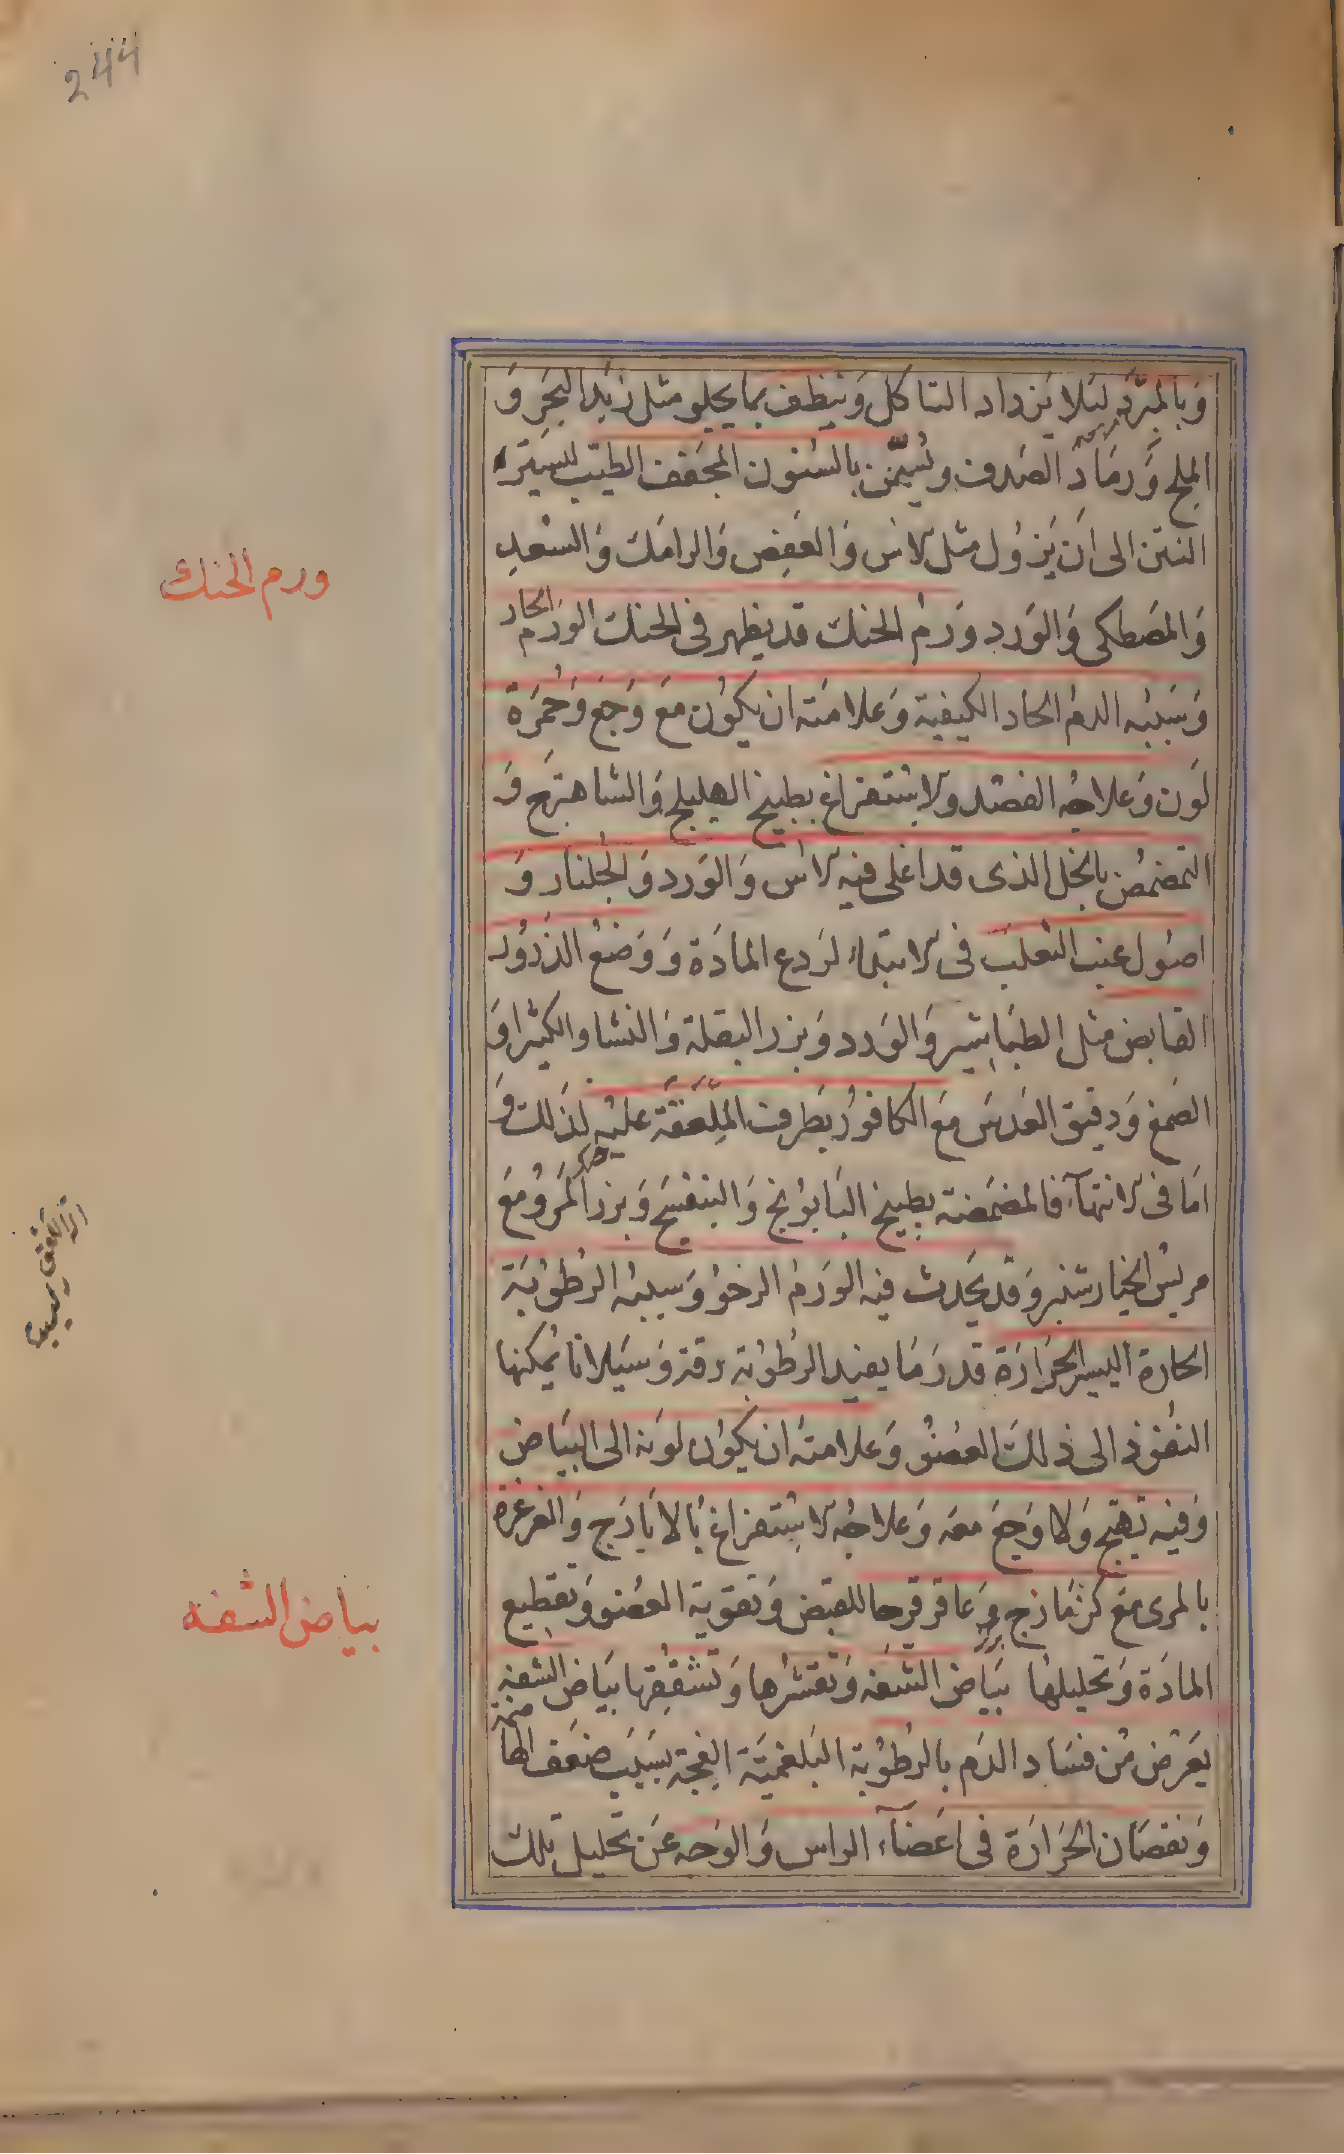 244
وَبالمبَرّد لئلا يَزداد التاكل وَينظف بما يجلو مثل زبَد البَحَر وَ
الملح وَرمَاد الصَدف ويُسَنّن بالسَنون المجَفف الطيّب ليستر
النتن الى اَن يَزوُل مثل الاس وَالعَفِص وَالرامَك وَالسُعد
وَالمَصَطكى وَالوَرد وَرمُ الحنك قد يظهر فى الحنك الوَرَم الحار
وَسَبَبُه الدمُ الحاد الكيفية وَعلامَته ان يكوُن مَعَ وَجَع وَحُمَرة
لَون وَعلاجُه الفصَد والاستفراغ بطبيخ الهليلج وَالشاهترج وَ
التمضمُض بالخل الذى قد اغلى فيه الاس وَالوَرد وَالجُلنار وَ
اصُول عنب الثعلب فى الابتداء لرَدع المادَة وَوَضعُ الذَرُور
القابض مثل الطبَاشير وَالوَرد وَبزر البَقلة وَالنشا والكثيرا وَ
الصَمغ وَدقيق العَدسَ مَعَ الكافوُر بطَرف المِلَعَقَة عليه لذَلك وَ
امَا فى الانتهآء فالمضمَضة بطبيخ البَابوُنج وَالبنفسج وَبزر المَرو مَعَ
مريسُ الخيارشنبر وَقد يَحَدث فيه الوَرمُ الرخوُ وَسببُه الرطوُبَة
الحارة اليسير الحَرارَة قدرَ مَا يفيد الرطوُبة رقة وَسَيَلانا يُمكنها
النفُوذ الى ذلكَ العضُو وَعلامتُه ان يكوُن لوَنه الى البَيَاض
وَفيه تهيج وَلا وَجعَ معَه وَعلاجُه الاستفراغ بالايَارَج وَالغرغرة
بالمرى مَع كزمَازج وَعاقرقرحا للقبض وَتقوية العضو وَتقطيع
المادَة وَتحليلهُا بيَاض الشَفه وَتقشرُها وَتشققِها بَيَاض الشفه
يعَرُض مِن فسَاد الدَم بالرطوُبة البَلغميَة الفجة بسَبَب ضعَف الهاضمة
وَنقصَان الحَرارَة فى اعَضآء الراس وَالوَجه عَن تحليل تلك
ورم الحنك
بياض الشفه